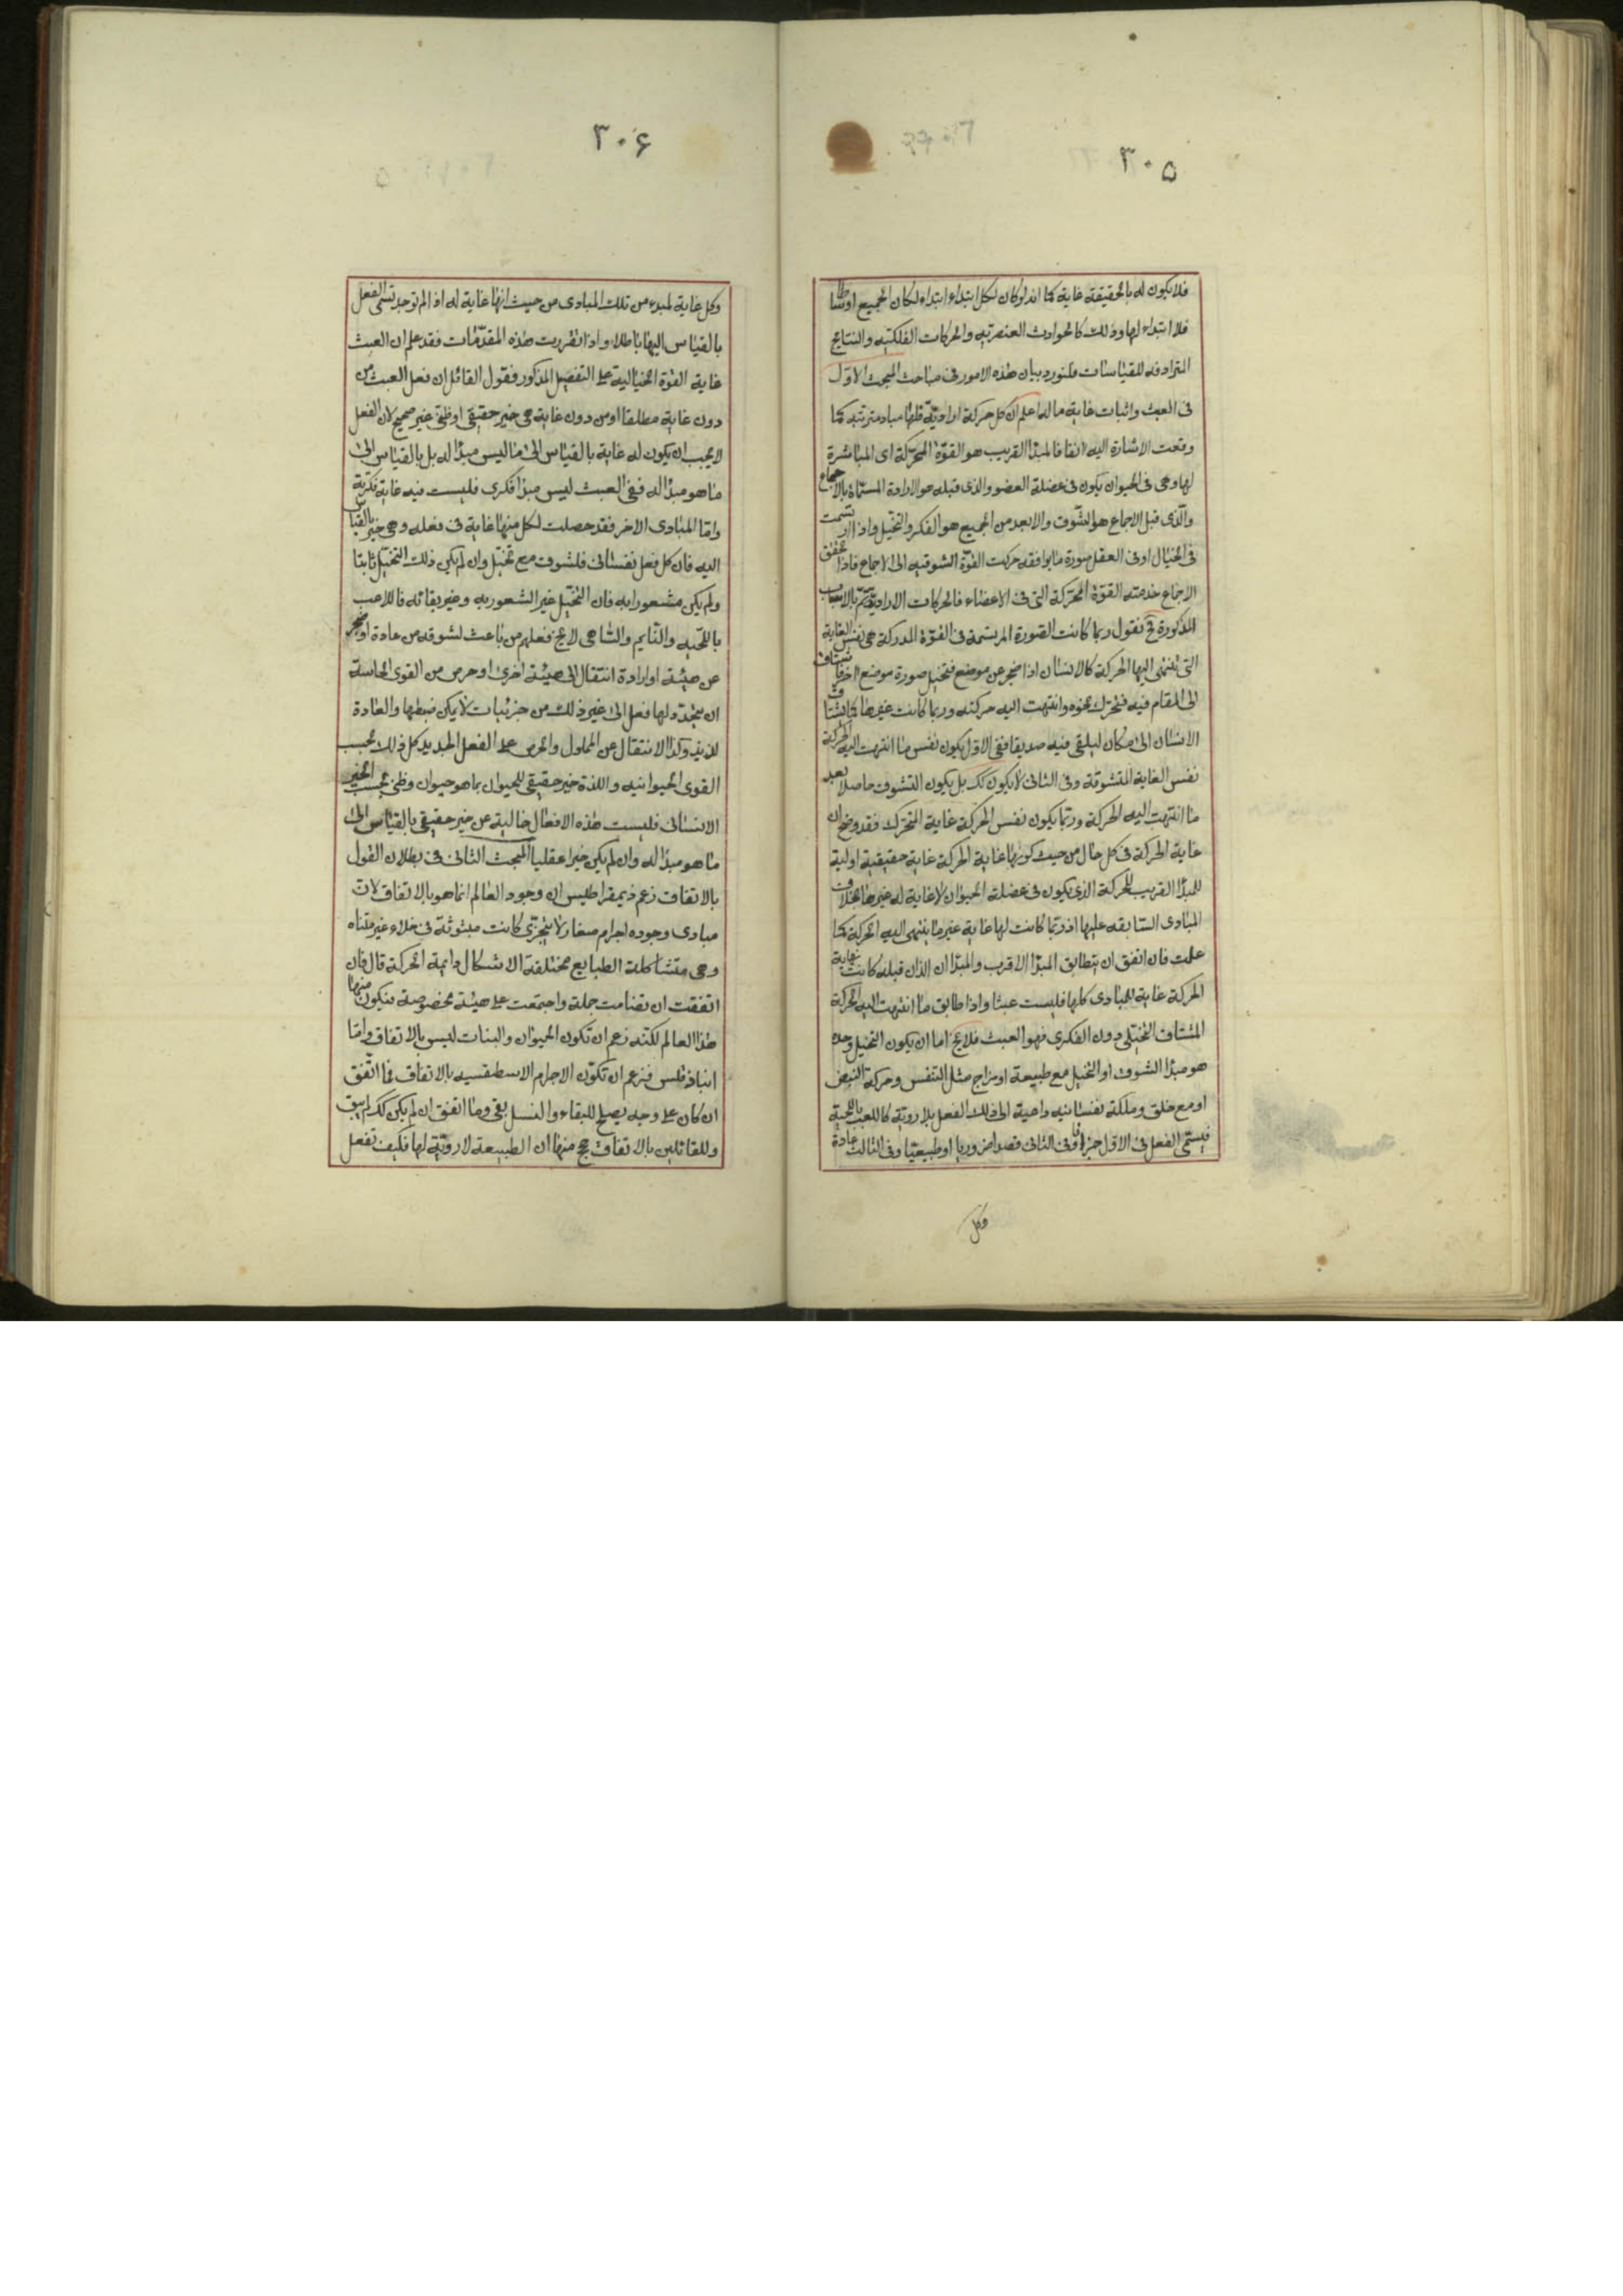 ٣٠٥
فلا يكون له بالحقيقة غاية كما انه لو كان لكل ابتداء ابتداء لكان الجميع اوساطا
فلا ابتداء لها وذلك كالحوادث العنصريه والحركات الفلكيه والنتايج
المترادفه للقياسات فلنورد بيان هذه الامور فى مباحث المبحث الاول
فى العبث واثبات غاية ما له اعلم ان كل حركة اراديّة فلها مباد مترتبه كما
وقعت الاشارة اليه انفا فالمبدأ القريب هو القوّة المحرّكة اى المباشرة
لها وهى فى الحيوان يكون فى عضلة العضو والذى قبله هو الارادة المسمّاة بالاجماع
والّذى قبل الاجماع هو الشّوق والابعد من الجميع هو الفكر والتخيّل واذا ارتسمت
فى الخيال او فى العقل صورة ما يوافقه حركت القوّة الشوقيه الى الاجماع فاذا تحقق
الاجماع خدمته القوّة المحرّكة التى فى الاعضاء فالحركات الاراديّة تتم بالاسباب
المذكورة فح نقول ربما كانت الصّورة المرتسمة فى القوّة المدركة هى نفس الغاية
التى تنتهى اليها الحركة كالانسان اذا ضجر عن موضع فتخيل صورة موضع اخر فاشتاق
الى المقام فيه فتحرّك نحوه وانتهت اليه حركته وربما كانت غيرها كما يشتاق
الانسان الى مكان ليلقى فيه صديقا ففى الاوّل يكون نفس ما انتهت اليه الحركة
نفس الغاية المتشوقة وفى الثانى لا يكون كك بل يكون التشوق حاصلا بعد
ما انتهت اليه الحركة وربّما يكون نفس الحركة غاية المتحرّك فقد وضح ان
غاية الحركة فى كل حال من حيث كونها غاية الحركة غاية حقيقية اولية
للمبدأ القريب للحركة الذى يكون فى عضلة الحيوان لا غاية له غيرها بخلاف
المبادى السّابقه عليها اذ ربّما كانت لها غاية غير ما ينتهى اليه الحركة كما
علمت فان اتفق ان يتطابق المبدأ الاقرب والمبدأان الذان قبله كانت نهاية
الحركة غاية للمبادى كلها فليست عبثا واذا طابق ما انتهت اليه الحركة
المشتاق التخيّلى دون الفكرى فهو العبث فلا يخ اما ان يكون التخيل وحده
هو مبدأ الشوق او التخيل مع طبيعة او مزاج مثل التنفس وحركة النبض
او مع خلق وملكة نفسانيه داعية الى ذلك الفعل بلا رويّة كاللعب باللحية
فيسمّى الفعل فى الاول جزافا وفى الثانى قصدا ضروريا او طبيعيّا وفى الثالث عادة
وكل
٣٠۶
وكل غاية لمبدء من تلك المبادى من حيث انها غاية له اذا لم توجد تسمّى الفعل
بالقياس اليها باطلا واذا تقررت هذه المقدّمات فقد علم ان العبث
غاية القوّة الخيالية على التفصيل المذكور فقول القائل ان فعل العبث من
دون غاية مطلقا او من دون غاية هى خير حقيقى او ظنى غير صحيح لان الفعل
لا يجب ان يكون له غاية بالقياس الى ما ليس مبدأ له بل بالقياس الى
ما هو مبدأ له ففى العبث ليس مبدأ فكرى فليست فيه غاية فكرية
وامّا المبادى الاخر فقد حصلت لكل منها غاية فى فعله وهى خير بالقياس
اليه فان كل فعل نفسانى فلشوق مع تخيل وان لم يكن ذلك التخيل ثابتا
ولم يكن مشعورا به فان التخيّل غير الشعور به وغير بقائه فاللاعب
باللحيه والنّايم والسّاهى لا يخ فعلهم من باعث لشوقه من عادة او ضجر
عن هيئة او ارادة انتقال الى هيئة اخرى او حرص من القوى الحاسة
ان يتجدّد لها فعل الى غير ذلك من جزئيات لا يمكن ضبطها والعادة
لذيذ وكذا الانتقال عن المملول والحرص على الفعل الجديد كل ذلك بحسب
القوى الحيوانيه واللذة خير حقيقى للحيوان بما هو حيوان وظنى بحسب الخير
الانسانى فليست هذه الافعال خالية عن خير حقيقى بالقياس الى
ما هو مبدأ له وان لم يكن خيرا عقليا المبحث الثانى فى بطلان القول
بالاتفاق زعم ذيمقراطيس ان وجود العالم انما هو بالاتفاق لانّ
مبادى وجوده اجرام صغار لا يتجزى كانت مبثوثة فى خلاء غير متناه
وهى متشاكلة الطبايع مختلفة الاشكال دايمة الحركة قال فان
اتفقت ان تضامت جملة واجتمعت على هيئة مخصوصة فيكون منها
هذا العالم لكنّه زعم ان تكون الحيوان والنبات ليس بالاتفاق وامّا
انباذقلس فزعم ان تكوّن الاجرام الاسطقسيه بالاتفاق فما اتّفق
ان كان على وجه يصلح للبقاء والنسل بقى وما اتفق ان لم يكن كك لم يبق
وللقائلين بالاتفاق حجج منها ان الطبيعة لا رويّة لها فكيف تفعل